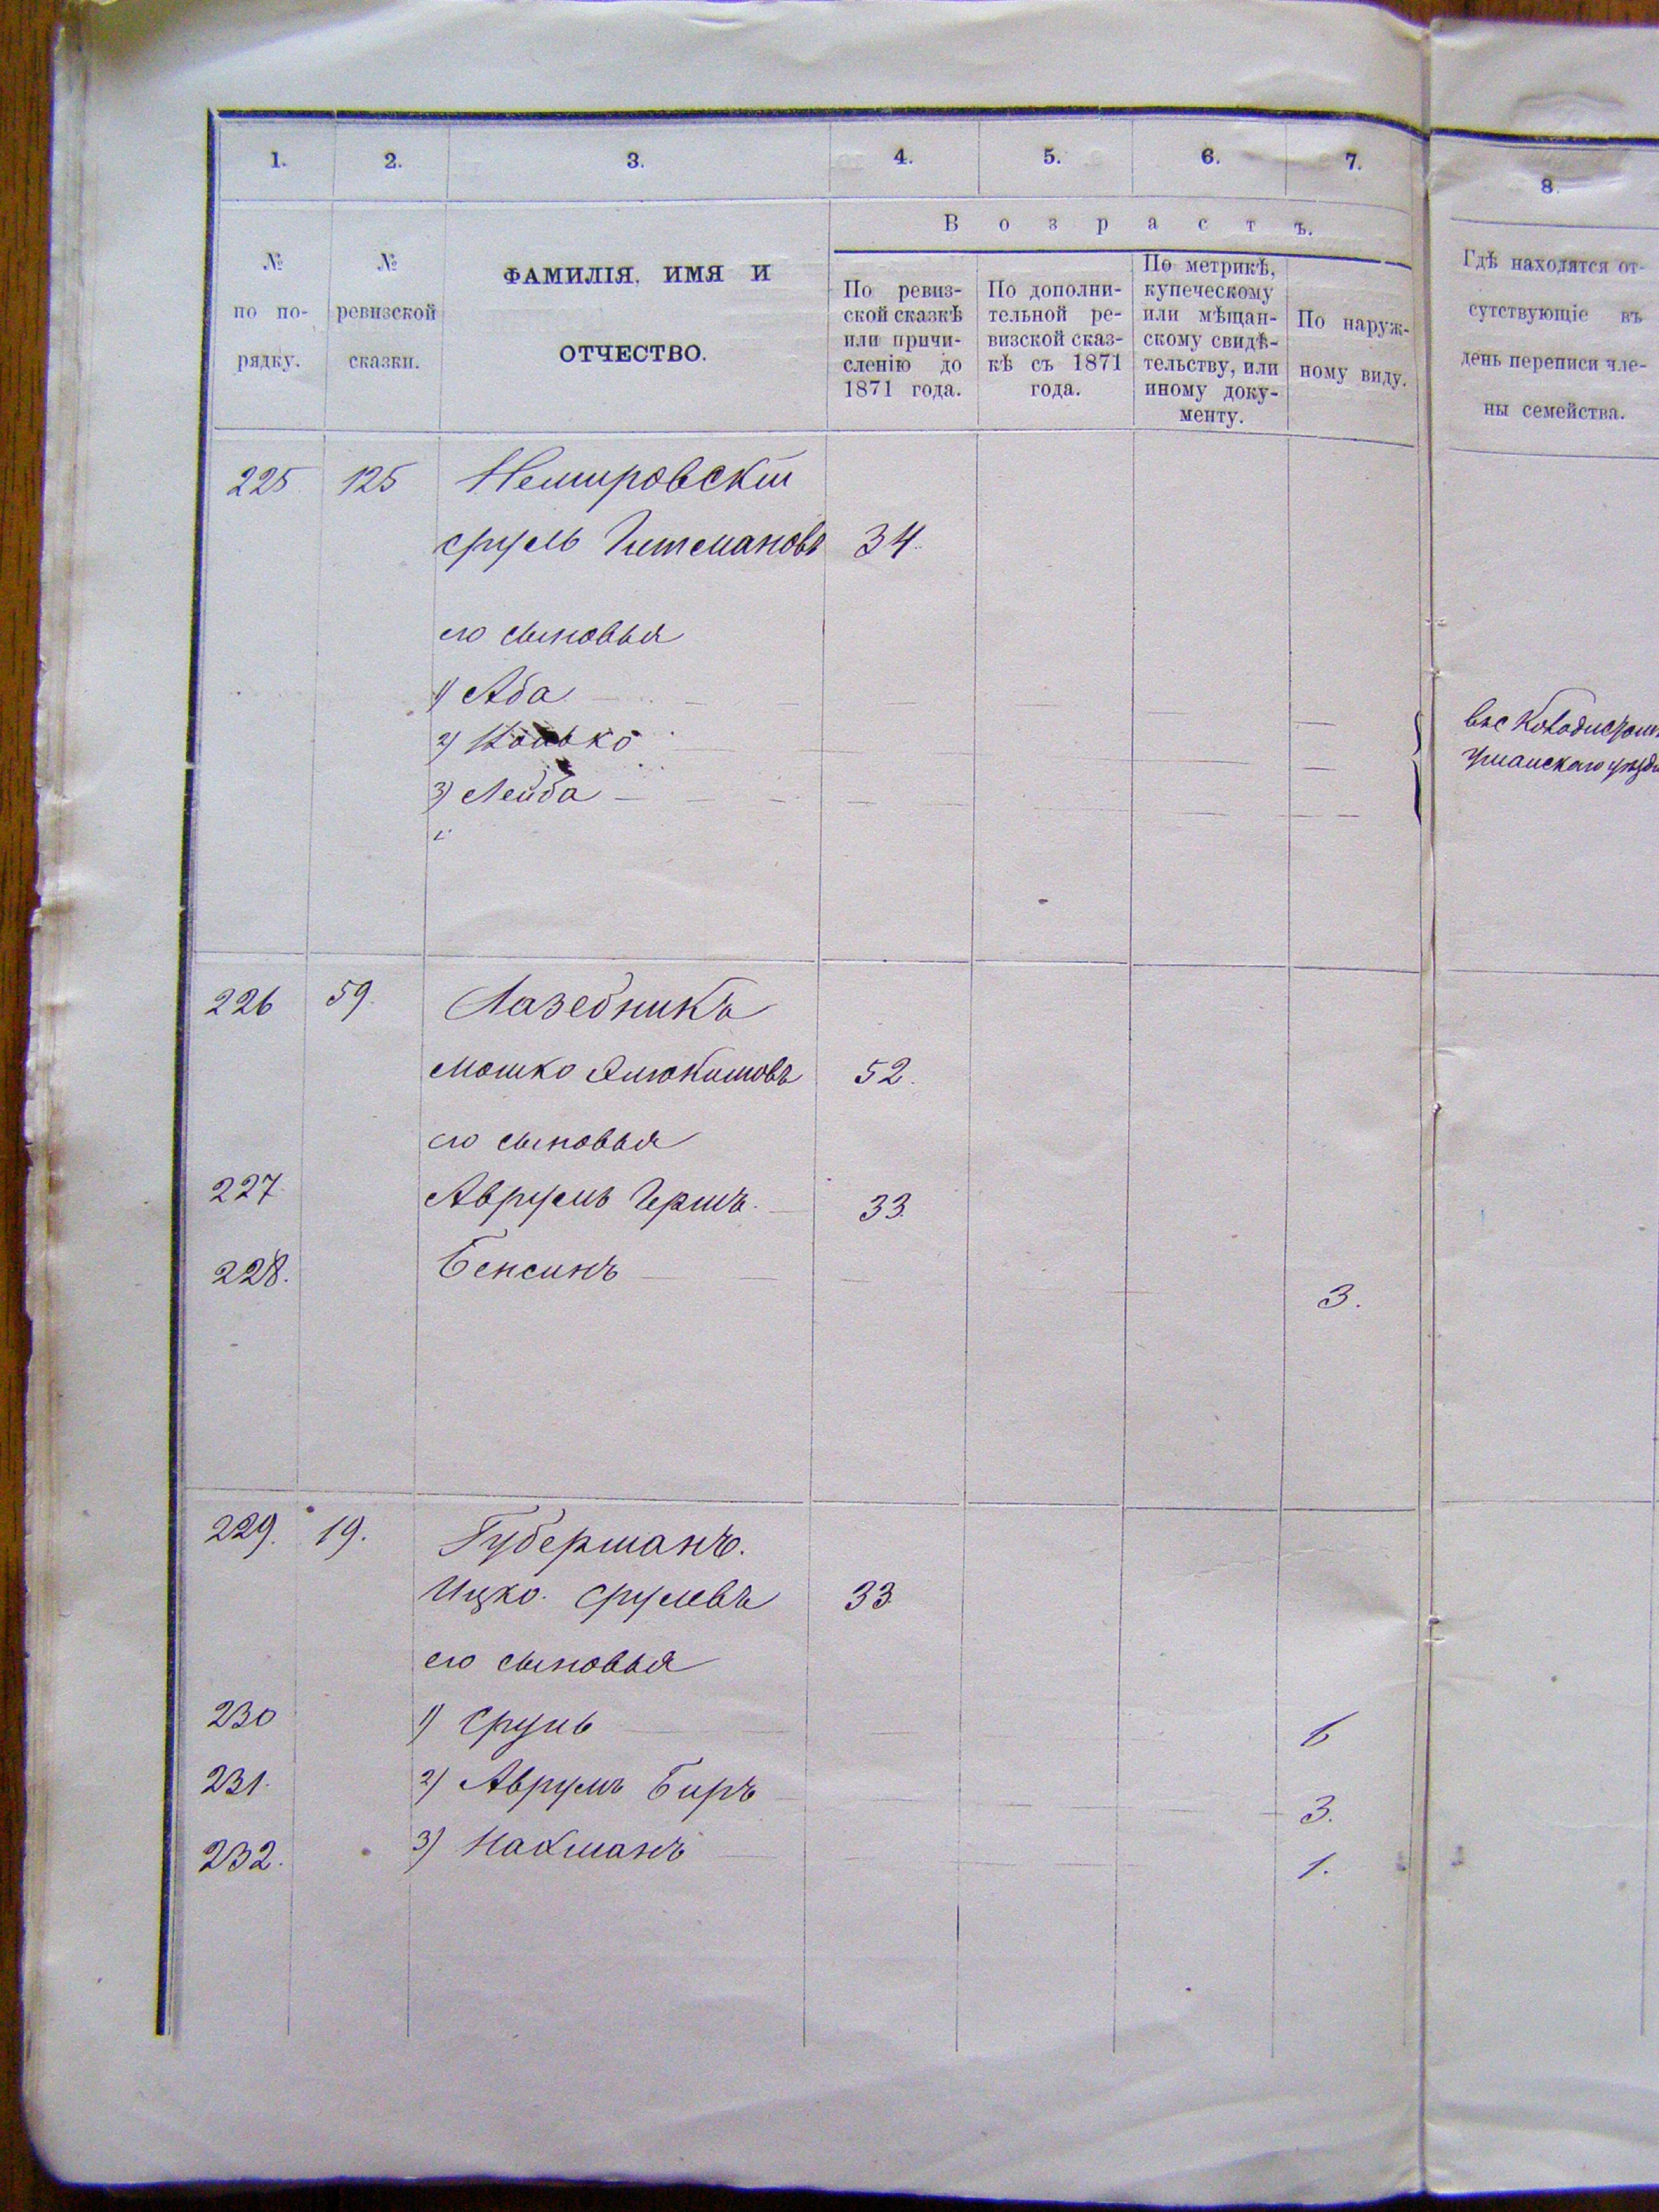 1. 2. 3. 4. 5. 6. 7. 8.
Возрастъ.
№ по порядку.
№ ревизской сказки.
ФАМИЛІЯ, ИМЯ И ОТЧЕСТВО.
По ревиз-
ской сказкѣ
или причи-
сленію до
1871 года.
По дополни-
тельной ре-
визской сказ-
кѣ съ 1871
года.
По метрикѣ,
купеческому
или мѣщан-
скому свидѣ-
тельству, или
иному доку-
менту.
По наруж-
ному виду.
Гдѣ находятся от-
сутствующіе въ
день переписи чле-
ны семейства.
225 125 Немировскій
Сруль 34
его сыновья
1) Аба
2)
3) Лейба
Уманскаго
226 59. Лазебникъ
Мошко 52.
его сыновья
227 Аврумъ Гершъ. 33.
228. Бенсинъ 3.
229. 19. Губерманъ.
Ицко. Срулевъ 33.
его сыновья
230 1) Сруль 6
231. 2) Аврумъ Беръ 3.
232. 3) Нахманъ 1.